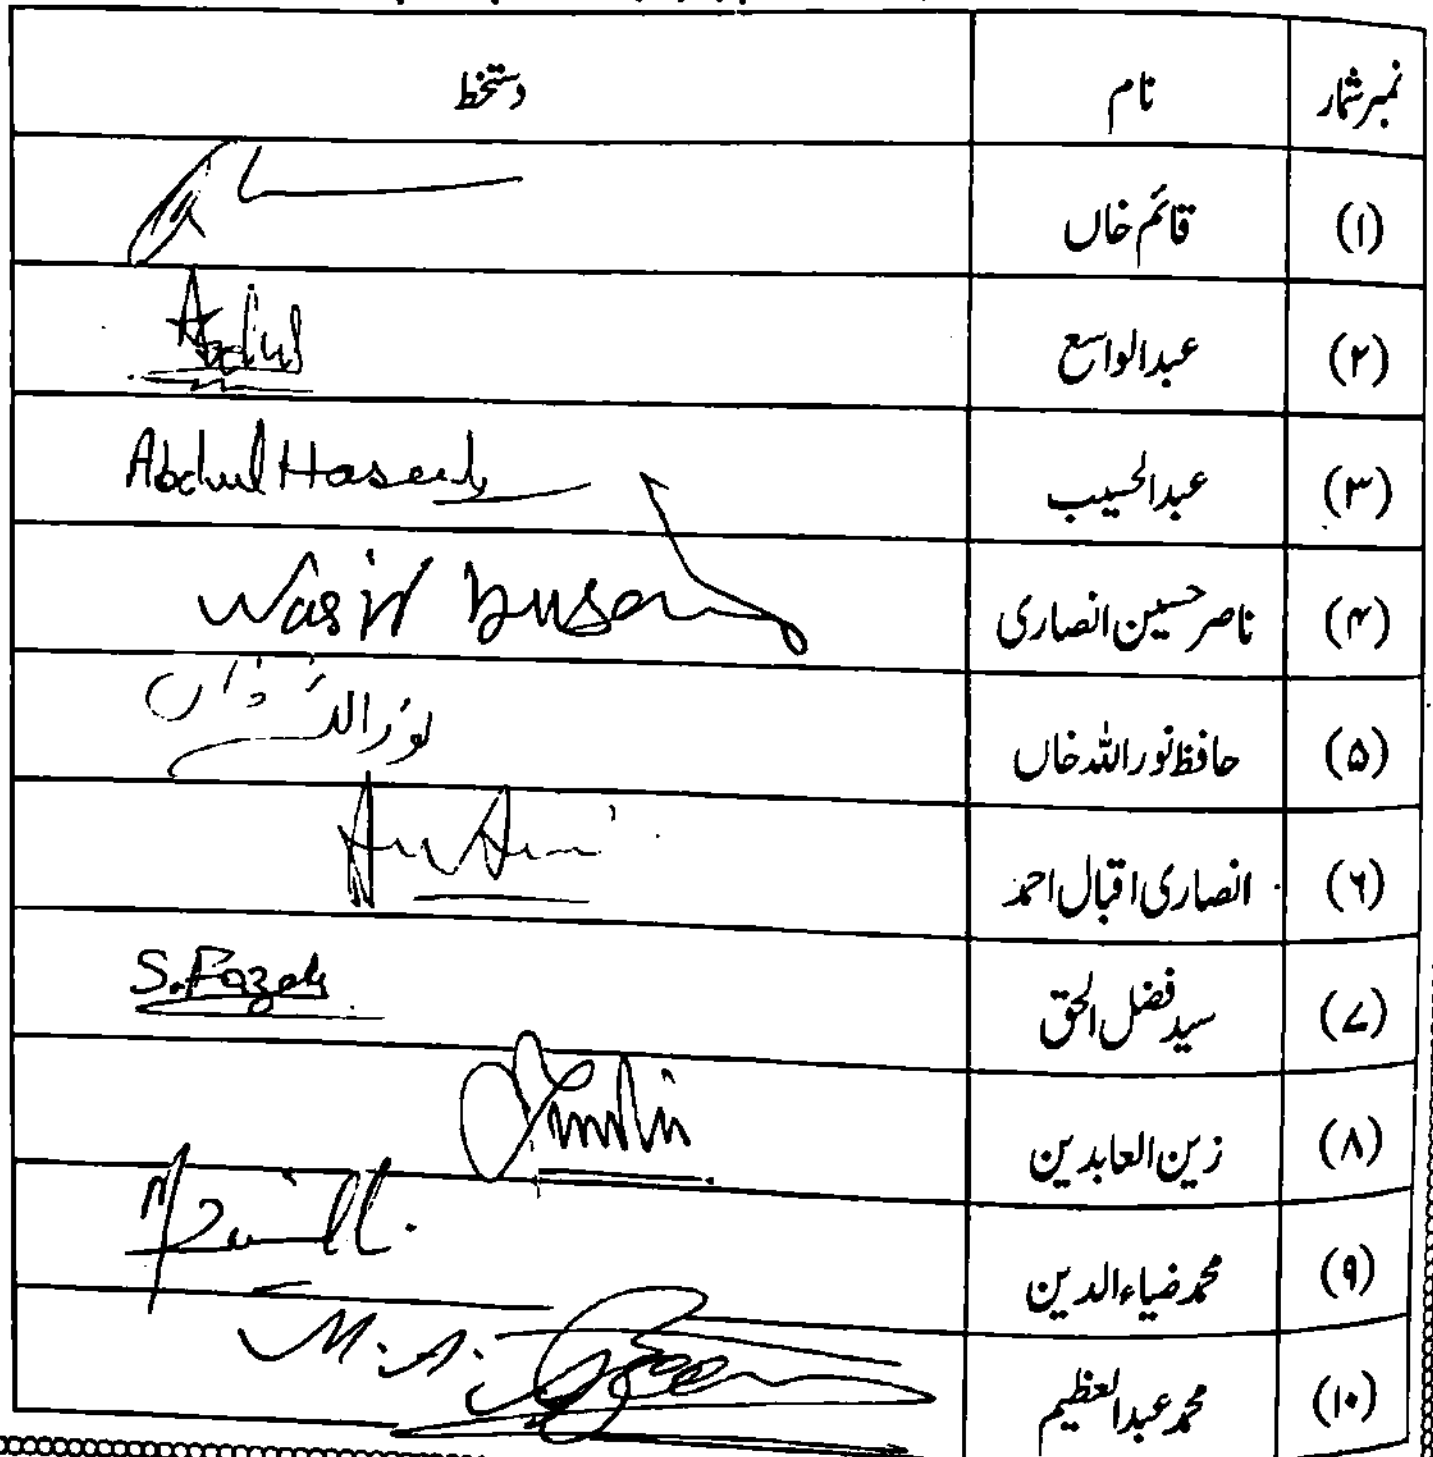 نمبر شمار نام دستخط
(۱) قائم خاں
(۲) عبدالواسع Abdul
(۳) عبدالحسیب Abdul Haseeb
(۴) ناصر حسین انصاری Nasir
(۵) حافظ نور اللہ خاں
(۶) انصاری اقبال احمد
(۷) سید فضل الحق S. Fazal
(۸) زین العابدین
(۹) محمد ضیاء الدین
(۱۰) محمد عبدالعظیم M. A.